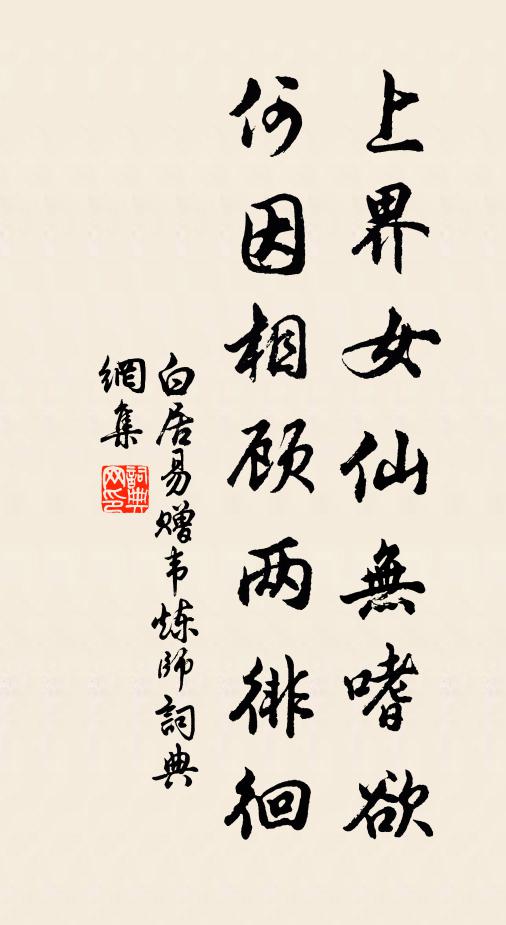 上界女仙無嗜欲
何因相顾两徘徊
白居易赠韦炼师詞典
網集
詞典
网印